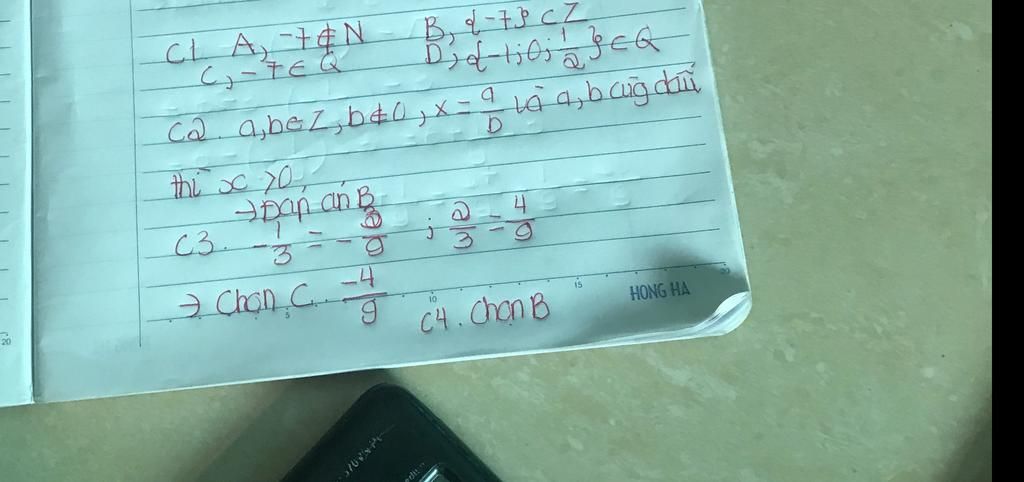 C1 A, -7 ∉ N B, {-7} ⊂ Z
C, -7 ∈ Q D, {-1; 0; 1/2} ∈ Q
C2. a, b ∈ Z, b ≠ 0, x = a/b và a, b cùng dấu
thì x > 0,
→ Đán án B
C3. -1/3 = -3/9 ; 2/3 = 4/9
→ Chọn C. -4/9
C4. Chọn B
HONG HA
5 10 15 20
20